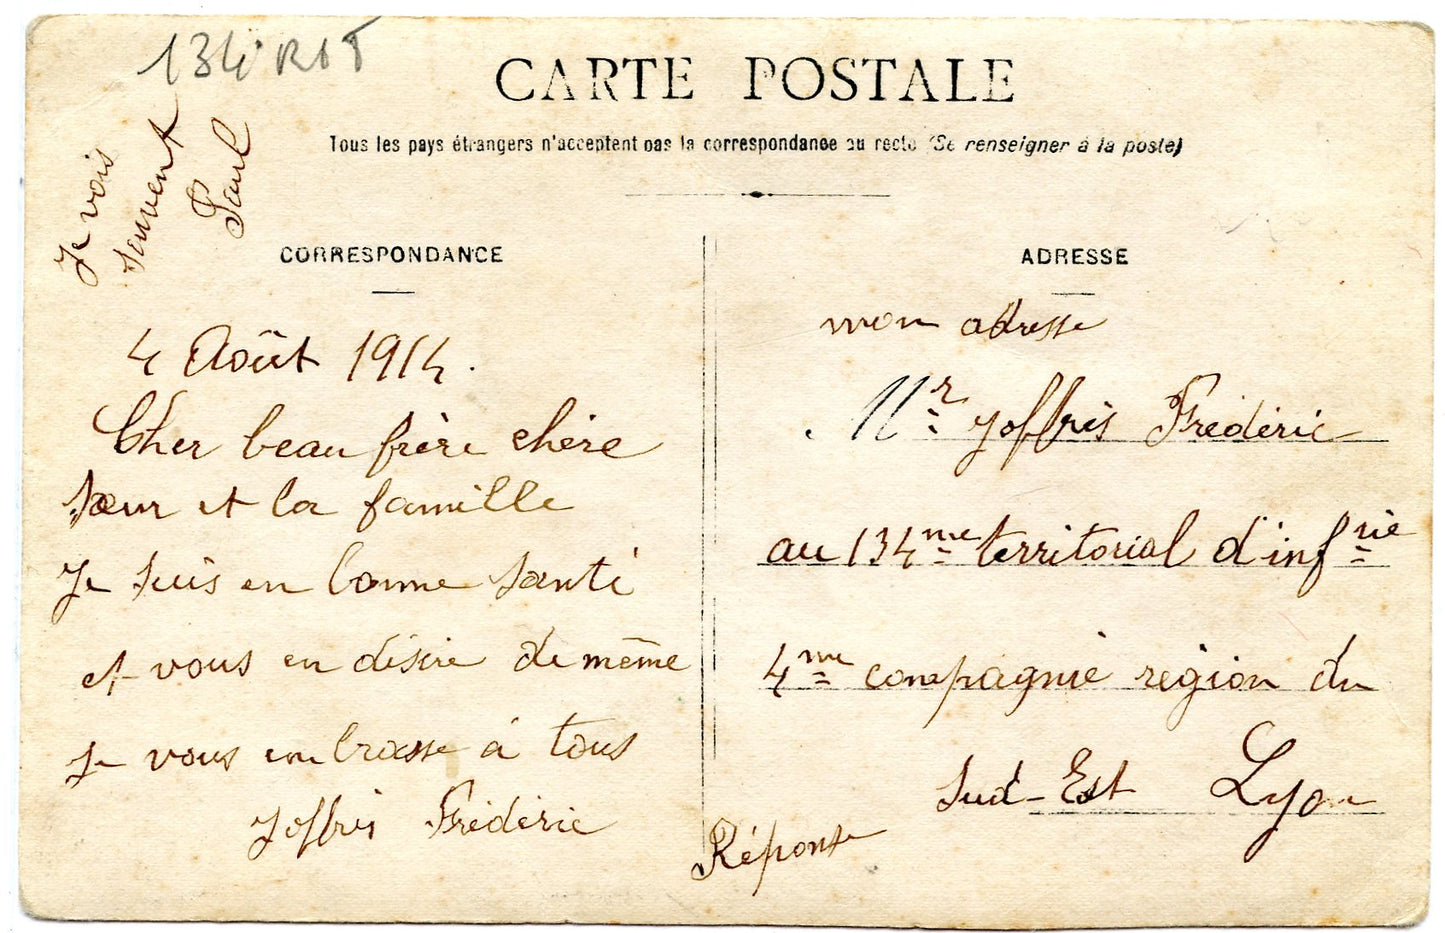 134e RIT
CARTE POSTALE
Tous les pays étrangers n'acceptent pas la correspondance au recto (Se renseigner à la poste)
Je vois
souvent
Paul
CORRESPONDANCE
4 Août 1914.
Cher beau frère chère
sœur et la famille
Je suis en bonne santé
et vous en désire de même
je vous embrasse à tous
Joffris Frédéric
ADRESSE
mon adresse
Mr Joffris Frédéric
au 134me territorial d'infrie
4me compagnie région du
Sud-Est Lyon
Réponse